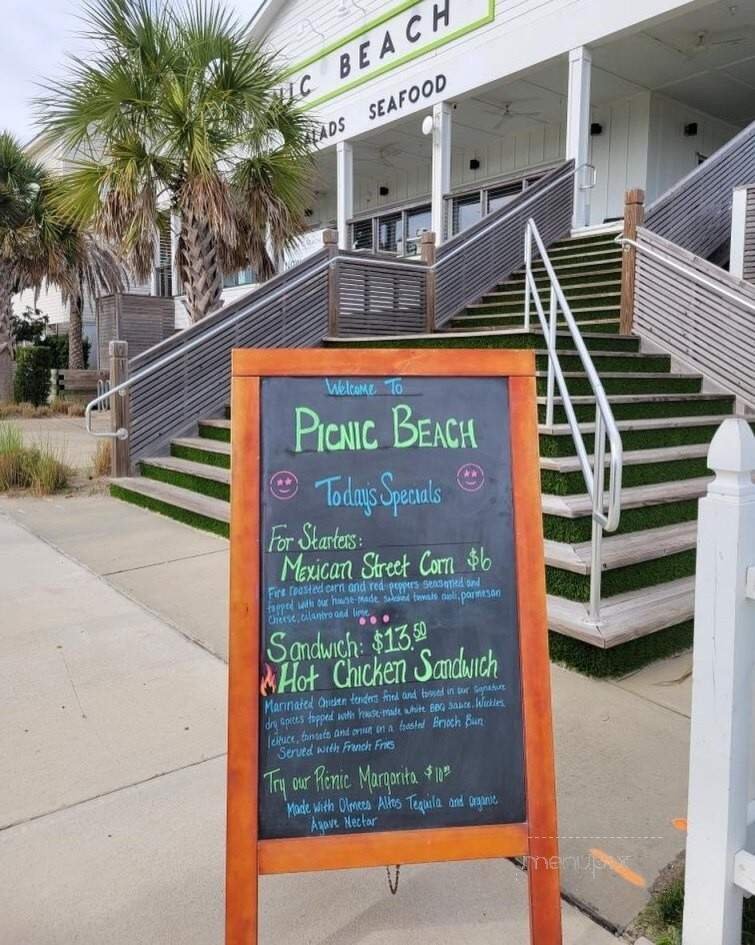 NIC BEACH
LADS SEAFOOD
Welcome To
PICNIC BEACH
Today's Specials
For Starters:
Mexican Street Corn $6
Fire roasted corn and red peppers seasoned and
topped with our house-made tomato aioli, parmesan
cheese, cilantro and lime
Sandwich: $13.50
Hot Chicken Sandwich
Marinated Chicken tenders fried and tossed in our signature
dry spices topped with house-made white BBQ sauce. Wickles,
lettuce, tomato and onion on a toasted Brioch Bun
Served with French Fries
Try our Picnic Margarita $10
Made with Olmeca Altos Tequila and organic
Agave Nectar
menupix